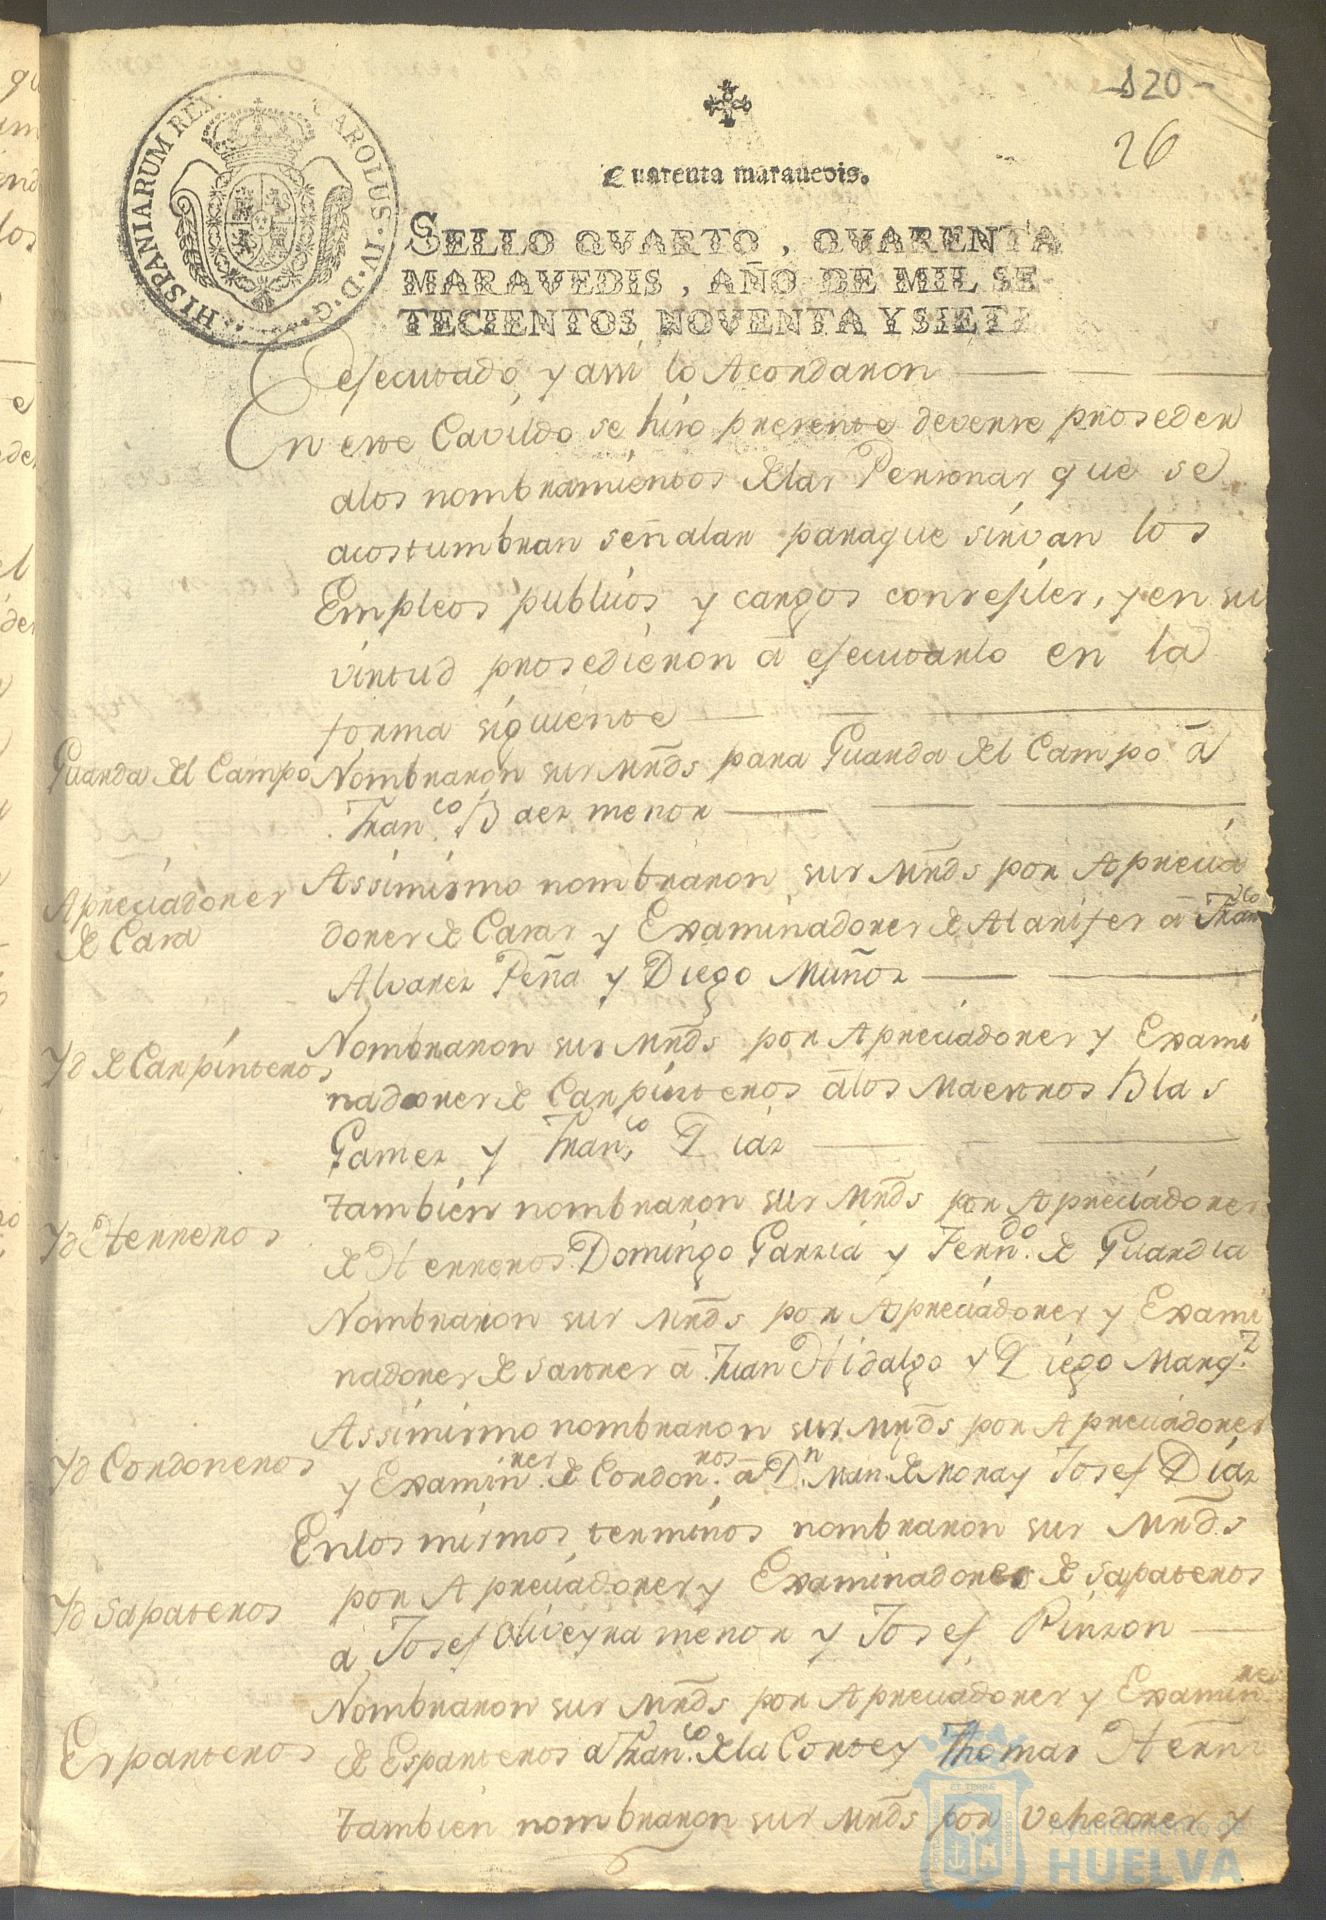 -120-
26
HISPANIARUM REX CAROLUS·IV·D·G·
Quarenta maravedis.
SELLO QVARTO, QVARENTA
MARAVEDIS, AÑO DE MIL SE-
TECIENTOS NOVENTA Y SIETE
ejecutado y assi lo Acordaron
En este Cavildo se hiso presente deverse proseder
alos nombramientos delas Personas que se
acostumbran señalar paraque sirvan los
Empleos publicos y cargos consejiles, y en su
virtud prosedieron â ejecutarlo en la
forma siguiente
Guarda del Campo Nombraron sus Mrds para Guarda del Campo â
Franco. Baez menor
Assimismo nombraron sus Mrds por Aprecia
Apreciadores
de Casa
dores de Casas y Examinadores de Alarifes â Franco
Alvarez Peña y Diego Muñoz
Nombraron sus Mrds por Apreciadores y Exami
Yd de Carpinteros
nadores de Carpinteros âlos Maestros Blas
Gamez y Franco. Diaz
tambien nombraron sus Mrds por Apreciadores
Yd Herreros
de Herreros Domingo Garzia y Ferndo. de Guardia
Nombraron sus Mrds por Apreciadores y Exami
nadores de Sastres â Juan Hidalgo y Diego Marqz.
Assimismo nombraron sus Mrds por Apreciadores
Yd Cordoneros
y Examinres. de Cordonros. â Dn. Man. de Mora y Josef Diaz
Enlos mismos terminos nombraron sus Mrds
por Apreciadores y Examinadores de Sapateros
Yd Sapateros
a Josef Oliveyra menor y Josef Pinzon
Nombraron sus Mrds por Apreciadores y Examinres
Esparteros
de Esparteros a Franco. dela Corte y Thomas Hern
tambien nombraron sus Mrds por Vehedores y
Ayuntamiento de
HUELVA